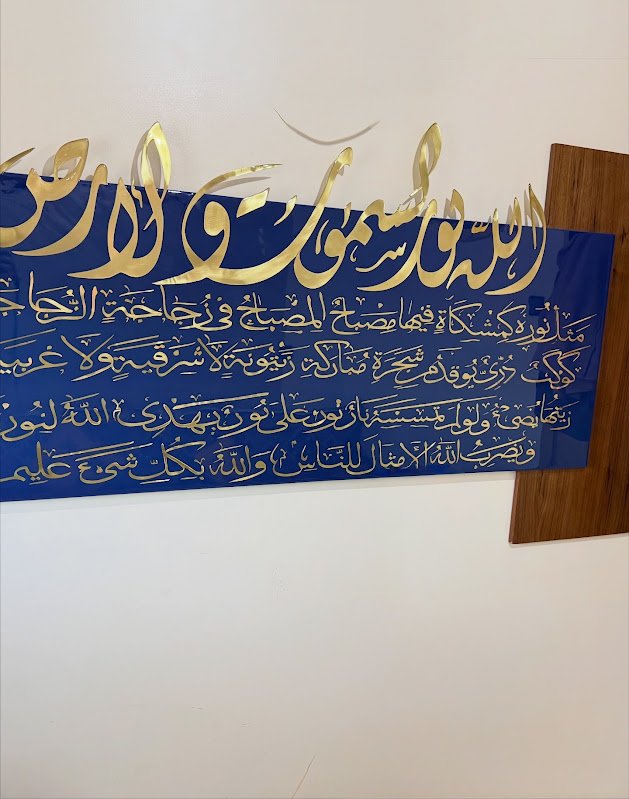 الله نور السموت والارض
مثل نوره كمشكاة فيها مصباح المصباح في زجاجة الزجاجـ
كوكب دري يوقد من شجرة مباركة زيتونة لا شرقية ولا غربيـ
زيتها يضيء ولو لم تمسسه نار نور على نور يهدي الله لنور
ويضرب الله الأمثال للناس والله بكل شيء عليم